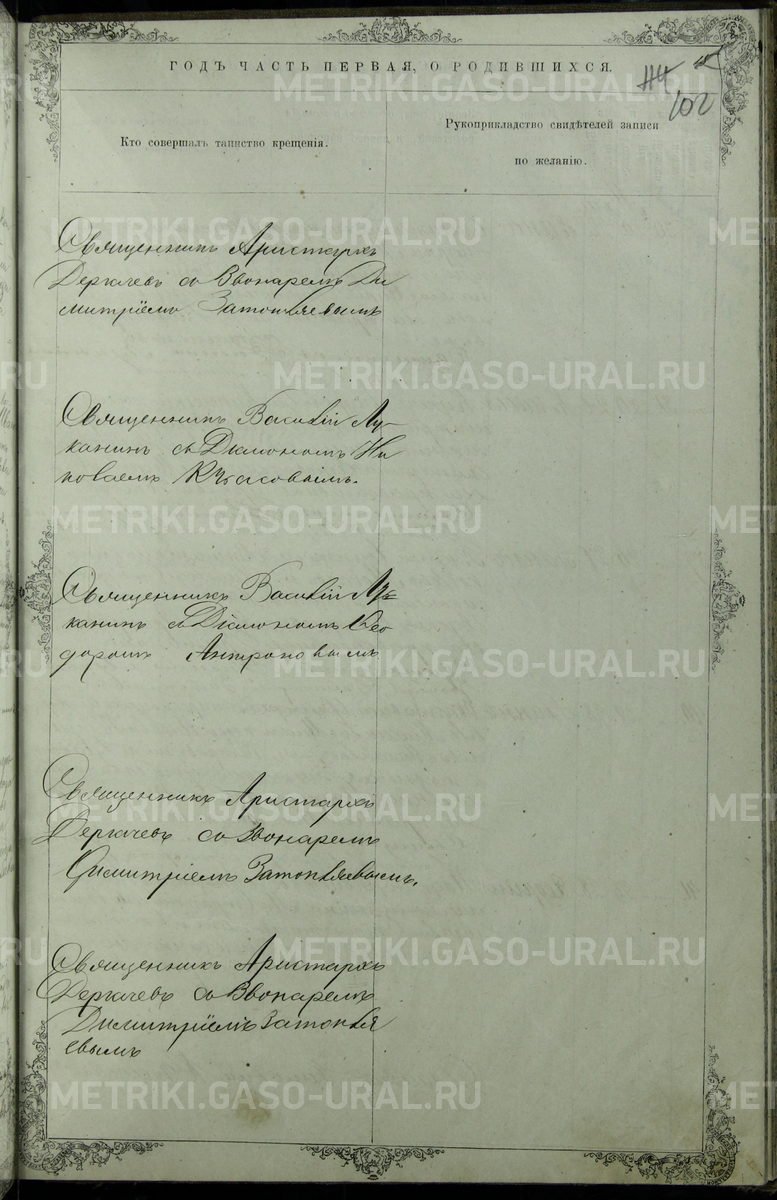 ГОДЪ ЧАСТЬ ПЕРВАЯ, О РОДИВШИХСЯ.
102
Кто совершалъ таинство крещенія.
Рукоприкладство свидѣтелей записи
по желанію.
Священникъ Аристархъ
Дергачевъ со Звонаремъ Ди
митріемъ Затопляевымъ
Священникъ Василій Лу-
канинъ съ Діакономъ Ни
колаемъ
Священникъ Василій Лу-
канинъ съ Діакономъ Ѳео
доромъ Антроповымъ
Священникъ Аристархъ
Дергачевъ со Звонаремъ
Димитріемъ Затопляевымъ.
Священникъ Аристархъ
Дергачевъ со Звонаремъ
Димитріемъ Затопля
евымъ
METRIKI.GASO-URAL.RU